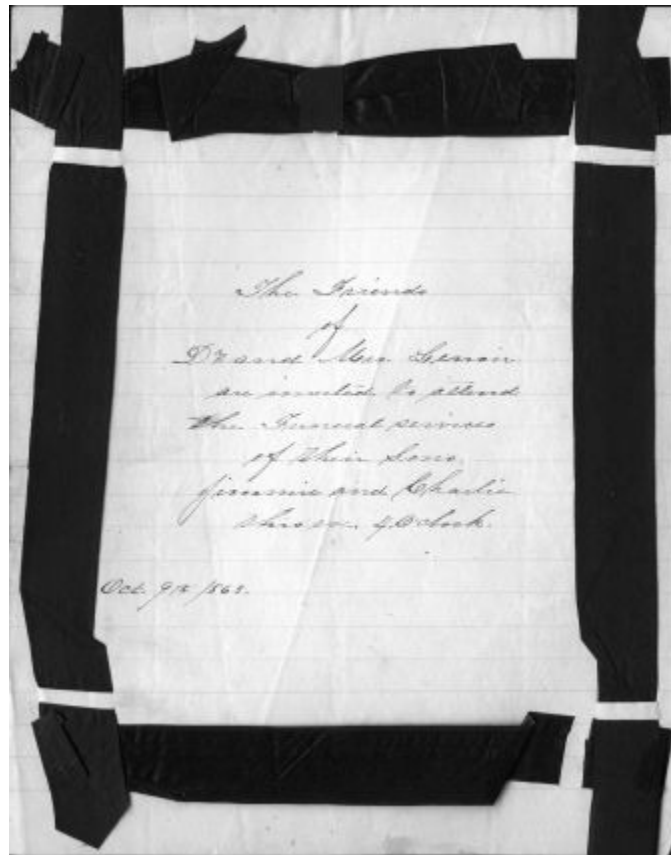 The Friends
of
Dr and Mrs Lenoir
are invited to attend
the Funeral services
of their Sons,
Jimmie and Charlie
this eve. 4 O'clock.
Oct. 9th /